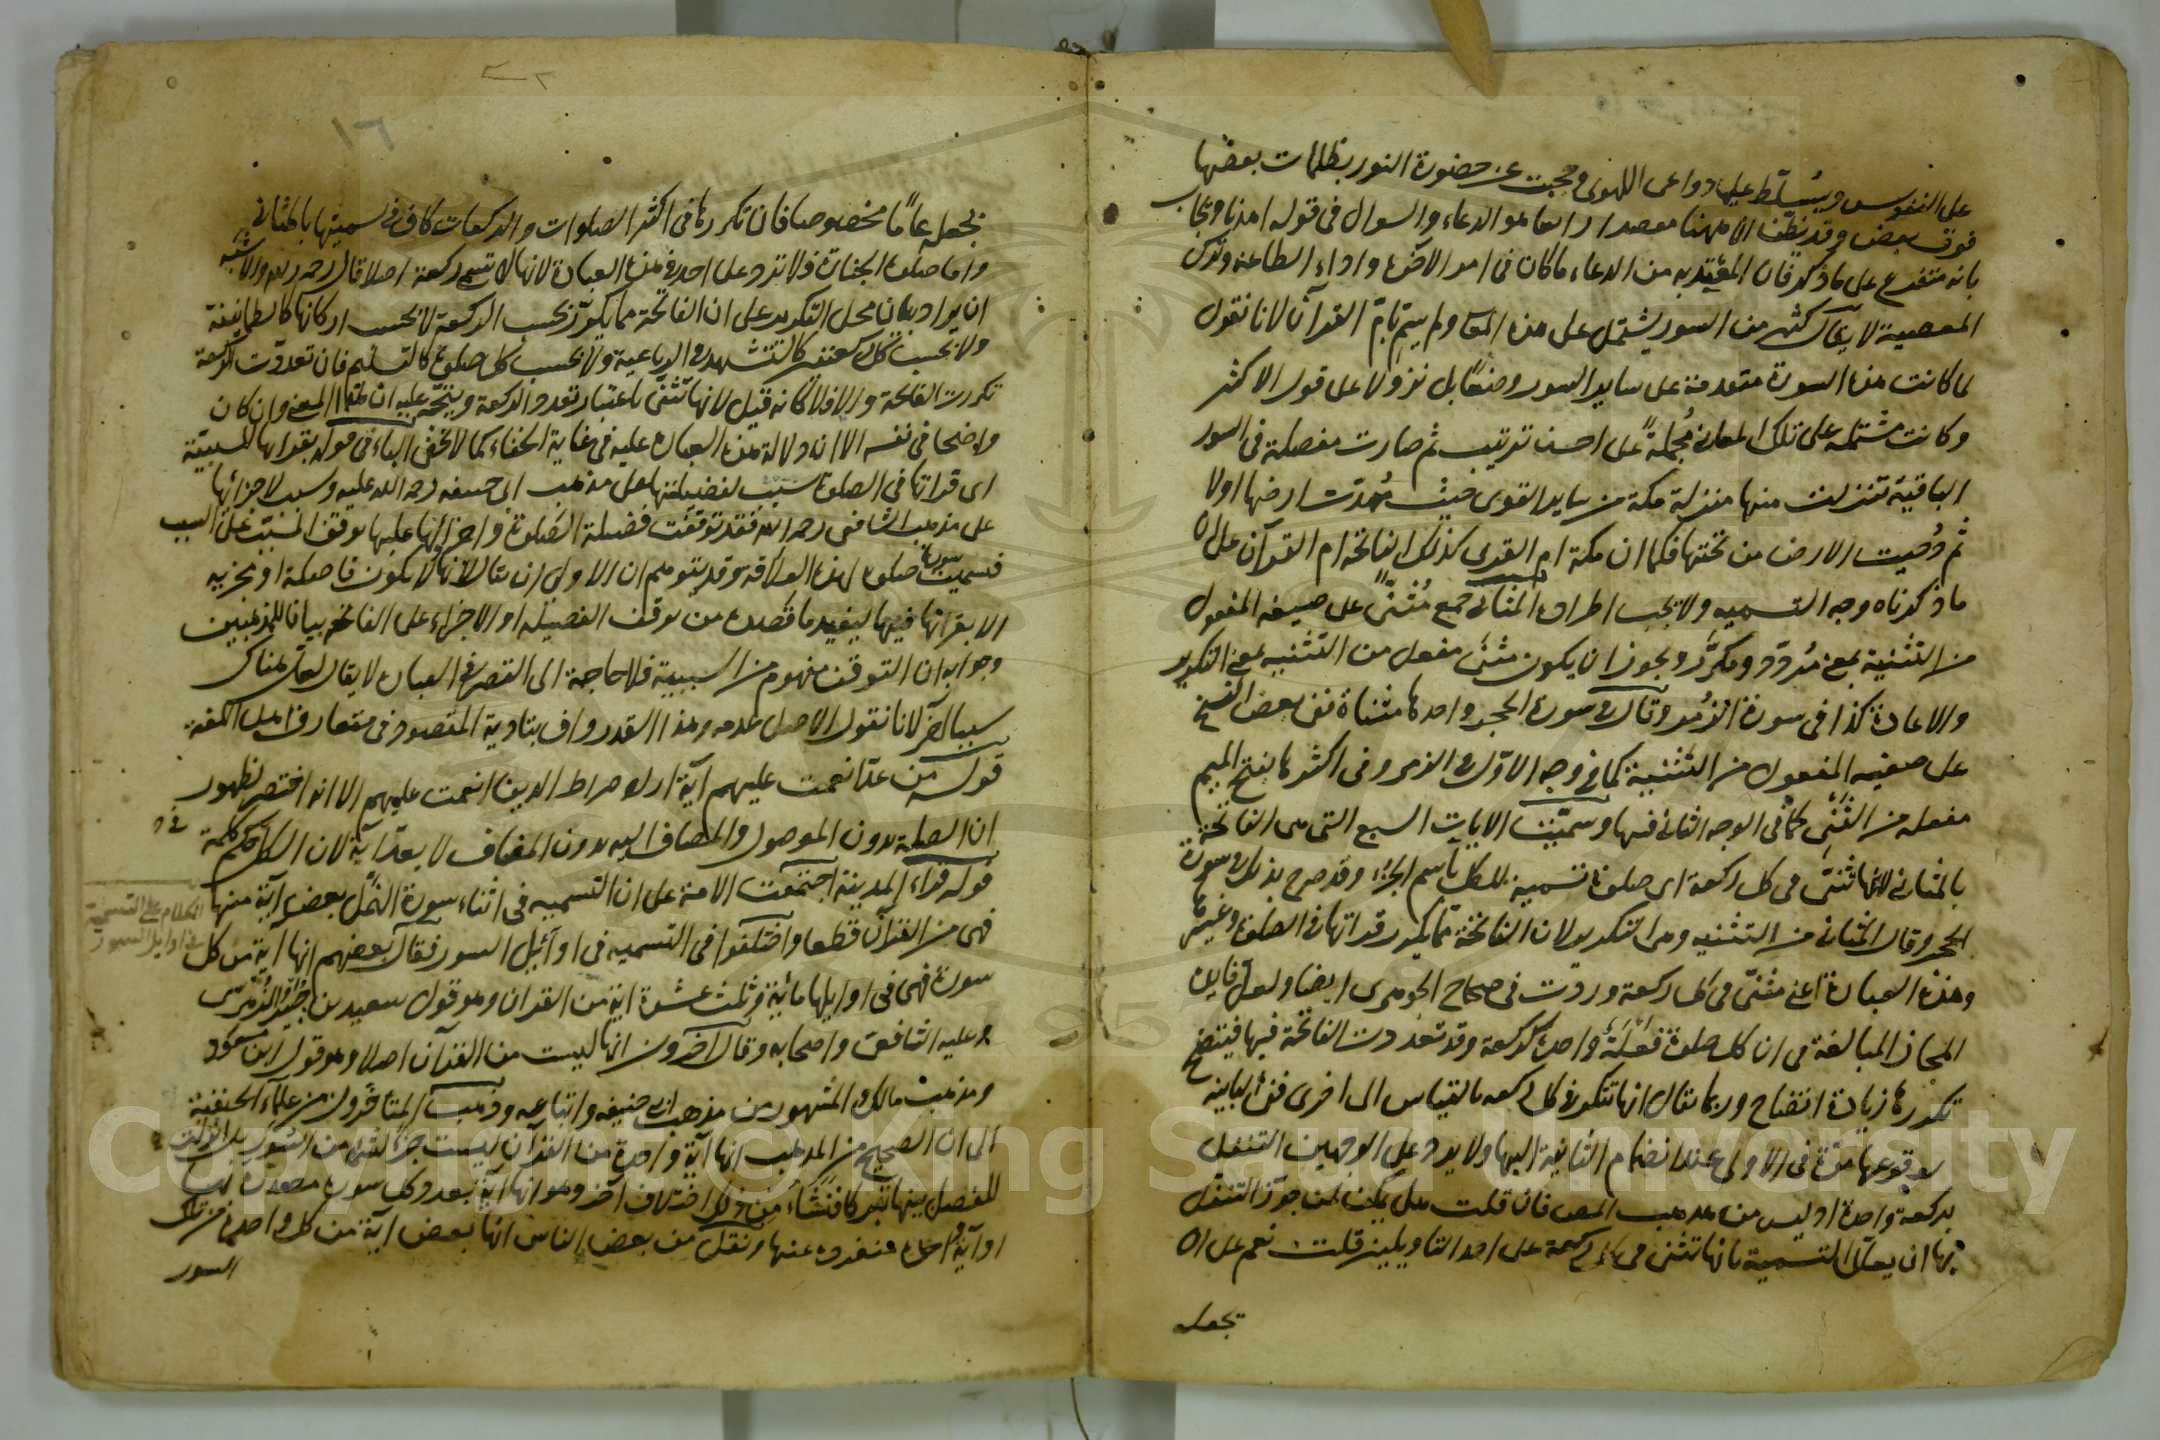 على النفوس ويسلط عليها دواعى اللهوى وحجبت عن حضورة النور بظلمات بعضها
فوق بعض وقد يظن ان مهنا مقصدا رابعا هو الدعاء والسوال فى قوله اهدنا ويجاب
بانه متفرع على ما ذكر فان المعتد به من الدعاء ما كان فى امر الآخرة واداء الطاعة وترك
المعصية لا يقال كثير من السور يشتمل على هذه المعا ولم يسم بام القرآن لانا نقول
لما كانت هذه السورة متقدمة على ساير السور وضعا بل نزولا على قول الاكثر
وكانت مشتملة على تلك المعانى مجملة على احسن ترتيب ثم صارت مفصلة فى السور
الباقية تنزلت منها منزلة مكة من ساير القرى حيث مهدت ارضها اولا
ثم دحيت الارض من تحتها فكما ان مكة ام القرى كذلك الفاتحة ام القرآن على ان
ما ذكرناه وجه التسميه ولا يجب اطراده المثانى جمع مثنى على صيغه المفعول
من التثنية بمعنى مردد ومكرر ويجوز ان يكون مثنى مفعل من التثنيه بمعنى التكرير
والاعادة كذا فى سورة الزمر وقال فى سورة الحجر واحدها مثناة ففى بعض النسخ
على صيغه المفعول من التثنية كما فى وجه الاول فى الزمر وفى اكثرها بفتح الميم
مفعله من الثنى كما فى الوجه الثانى فيها وسميت الايات السبع التى هى الفاتحة
بالمثانى لانها تثنى فى كل ركعة اى صلوة تسمية للكل باسم الجزء وقد صرح بذلك فى سورة
الحجر وقال المثانى من التثنيه وهى التكرير لان الفاتحة مما يكرر قراتها فى الصلوة وغيرها
وهذه العبارة اعنى مثنى فى كل ركعة وردت فى صحاح الجوهرى ايضا ولعل فايدة
المجاز المبالغة فى ان كل صلوة فعلة واحدة كركعة وقد تعددت الفاتحة فيها فيتضح
تكررها زيادة اتضاح وربما يقال انها تتكرر فى كل ركعه بالقياس الى اخرى ففى الثانية
لوقوعها مرة فى الاولى عند انضمام الثانية اليها ولا يرد على الوجهين التنفل
بركعة واحدة اذ ليس من مذهب المص فان قلت هل يمكن لمن جوز التنفل
بها ان يعلل التسمية بانها تثنى فى كل ركعة على احد التاويلين قلت نعم على ان
تجعله
١٦
نجعله عاما مخصوصا فان تكررها فى اكثر الصلوات والركعات كاف فى تسميتها بالمثانى
واما صلوة الجنازة فلا ترد على احدى هذه العبارة لانها لا تسمى ركعة اصلا قال رحمه الله والاشبه
ان يراد بيان محل التكرير على ان الفاتحة مما يكرر بحسب الركعة لا بحسب اركانها كالطمانينة
ولا بحسب كل ركعتين كالتشهد فى الرباعية ولا بحسب كل صلوة كالتسليم فان تعددت الركعة
تكررت الفاتحة والا فلا كانه قيل لانها تثنى باعتبار تعدد الركعة ويتجه عليه ان هذا المعنى وان كان
واضحا فى نفسه الا ان دلالة هذه العبارة عليه فى غاية الخفاء كما لا يخفى الباء فى قوله بقراتها للسببية
اى قراتها فى الصلوة سبب لفضيلتها على مذهب ابى حنيفه رحمة الله عليه وسبب لاجزائها
على مذهب الشافعى رحمه الله فقد توقفت فضيلة الصلوة واجزاؤها عليها توقف المسبب على السبب
فسميت سورة صلوة لهذه العلاقة وقد يتوهم ان الاولى ان يقال لانها لا يكون فاضلة او مجزيه
الا بقراتها فيها ليفيد ما قصده من توقف الفضيلة او الاجزاء على الفاتحة بيانا للمذهبين
وجوابه ان التوقف مفهوم من السببية فلا حاجة الى القصر فى العبارة لا يقال لعل هناك
سببا آخر لانا نقول الاصل عدمه وهذا القدر واف بتادية المقصود فى متعارف اهل اللغة
قوله من عد انعمت عليهم آية اراد صراط الذين انعمت عليهم الا انه اقتصر لظهور
ان الصلة بدون الموصول والمضاف اليه بدون المضاف لا يعد آية لان الكل فى حكم كلمة
قوله قراء المدينة اجتمعت الامة على ان التسميه فى اثناء سورة النمل بعض آية منها
الكلام على التسمية
فى اوايل السور
فهى من القرآن قطعا واختلفوا فى التسميه فى اوائيل السور فقال بعضهم انها آية من كل
سورة فهى فى اوايلها ماية وثلث عشرة اية من القران وهو قول سعيد بن جبير والزهرى
وعليه الشافعى واصحابه وقال آخرون انها ليست من القرآن اصلا وهو قول ابن مسعود
ومذهب مالك والمشهور من مذهب ابى حنيفه واتباعه وذهب المتاخرون من علماء الحنفية
الى ان الصحيح من المذهب انها آية واحدة من القرآن ليست جزأ لشئ من السور بل انزلت
للفصل بينها تبركا فنشأ من ذلك اختلاف آخر وهو انها آية بعد كل سورة مصدرة بها
او آية واحدة منفردة عنها ونقل عن بعض الناس انها بعض آية من كل واحدة من تلك
السور